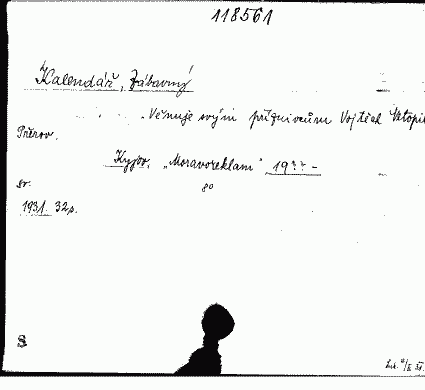 118561
Kalendář, Zábavný
. Věnuje svým příznivcům Vojtěch
Přerov.
Kyjov, „Moravoreklam" 19??-
8°
1931. 32s.
S